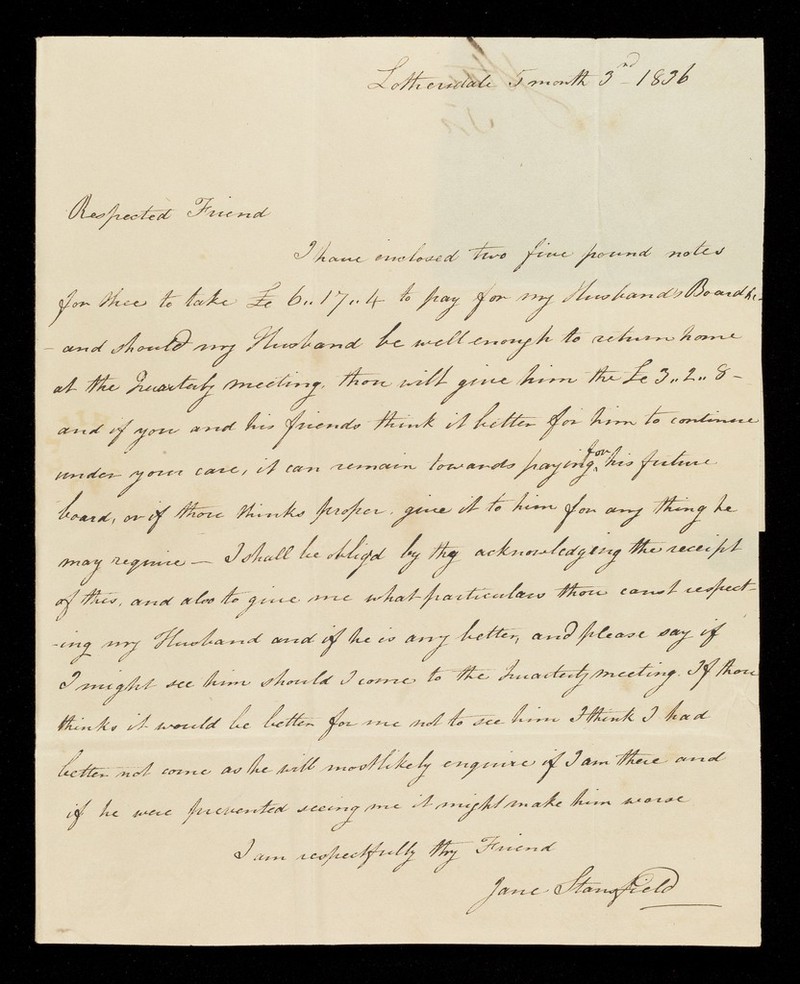 Lothersdale 5 month 3rd - 1836
Respected Friend
I have inclosed two five pound notes
for thee to take £ 6,, 17,, 4 to pay for my Husband's Board &c-
- and should my Husband be well enough to return home
at the Quarterly meeting, thou wilt give him the £ 3,, 2,, 8 -
and if you and his friends think it better for him to continue
under your care, it can remain towards paying for his future
board, or if thou thinks proper, give it to him for any thing he
may require — I shall be oblig'd by thy acknowledging the receipt
of this, and also to give me what particulars thou canst respect-
-ing my Husband and if he is any better, and please say if
I might see him should I come to the Quarterly meeting. If thou
thinks it would be better for me not to see him I think I had
better not come as he will most likely enquire if I am there and
if he were prevented seeing me it might make him worse
I am respectfully thy Friend
Jane Stansfield